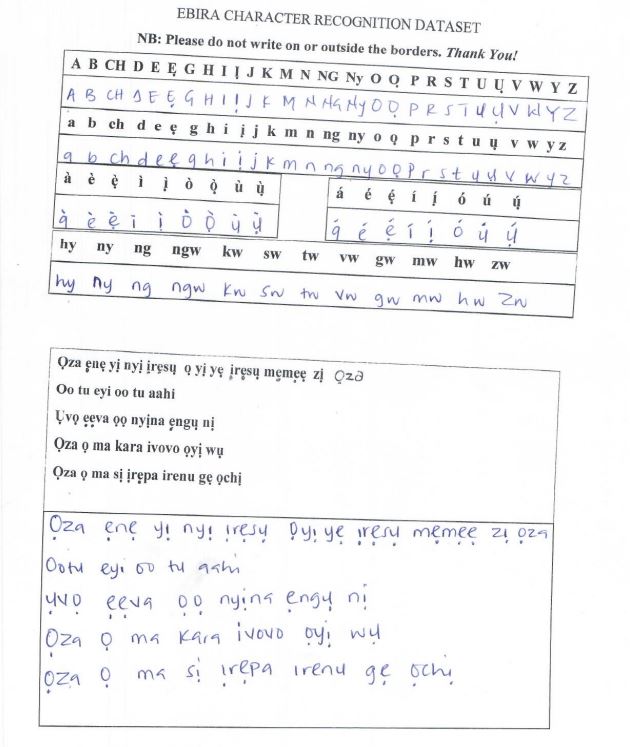 EBIRA CHARACTER RECOGNITION DATASET
NB: Please do not write on or outside the borders. Thank You!
A B CH D E Ẹ G H I Ị J K M N NG Ny O Ọ P R S T U Ụ V W Y Z
A B CH D E Ẹ G H I Ị J K M N Ng Ny O Ọ P R S T U Ụ V W Y Z
a b ch d e ẹ g h i ị j k m n ng ny o ọ p r s t u ụ v w y z
a b ch d e ẹ g h i ị j k m n ng ny o ọ p r s t u ụ v w y z
à è ẹ̀ ì ị̀ ò ọ̀ ù ụ̀
à è ẹ̀ ì ị̀ ò ọ̀ ù ụ̀
á é ẹ́ í ị́ ó ú ụ́
á é ẹ́ í ị́ ó ú ụ́
hy ny ng ngw kw sw tw vw gw mw hw zw
hy ny ng ngw kw sw tw vw gw mw hw zw
Ọza ẹnẹ yị nyị ịrẹsụ ọ yị yẹ ịrẹsụ mẹmẹẹ zị ọza
Oo tu eyi oo tu aahi
Ụvọ ẹẹva ọọ nyịna ẹngụ nị
Ọza ọ ma kara ivovo ọyị wụ
Ọza ọ ma sị ịrẹpa irenu gẹ ọchị
Ọza ẹnẹ yị nyị ịrẹsụ ọyị yẹ ịrẹsụ mẹmẹẹ zị ọza
Ootu eyi oo tu aahi
ụvọ ẹẹva ọọ nyịna ẹngụ nị
Ọza ọ ma kara ivovo ọyị wụ
Ọza ọ ma sị ịrẹpa irenu gẹ ọchị